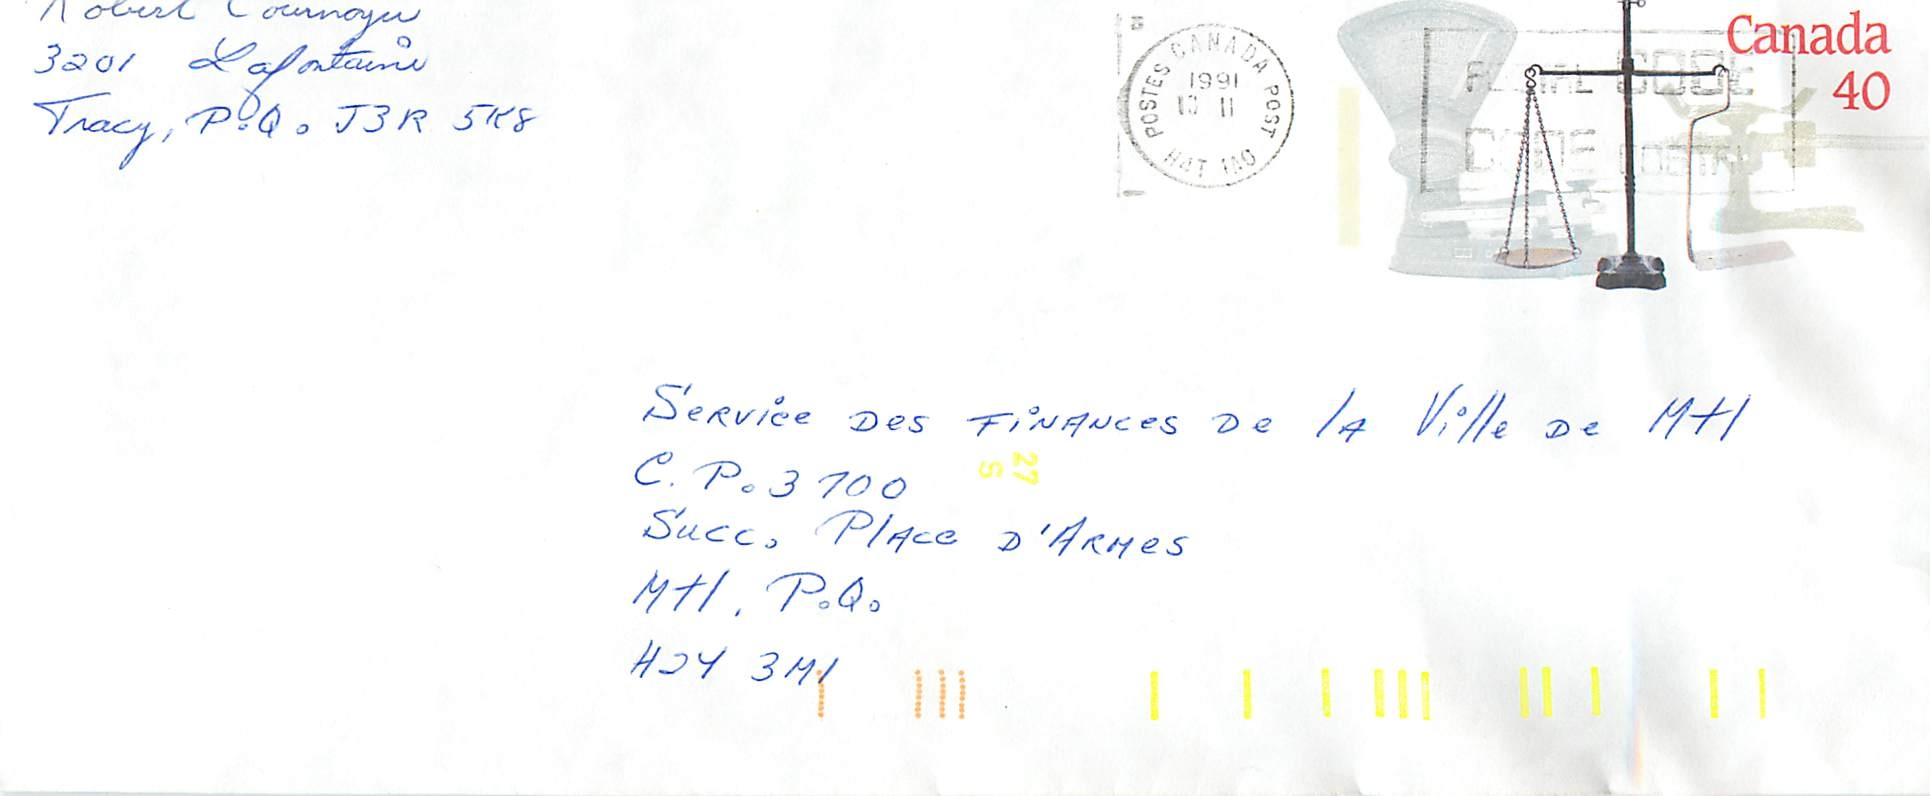 Robert Cournoyer
3201 Lafontaine
Tracy, P.Q. J3R 5K8
POSTES CANADA POST
1991
13 11
H4T 1A0
POSTAL CODE
CODE POSTAL
Canada
40
Service des Finances de la Ville de Mtl
C.P. 3700
27
S
Succ. Place d'Armes
Mtl, P.Q.
H2Y 3M1